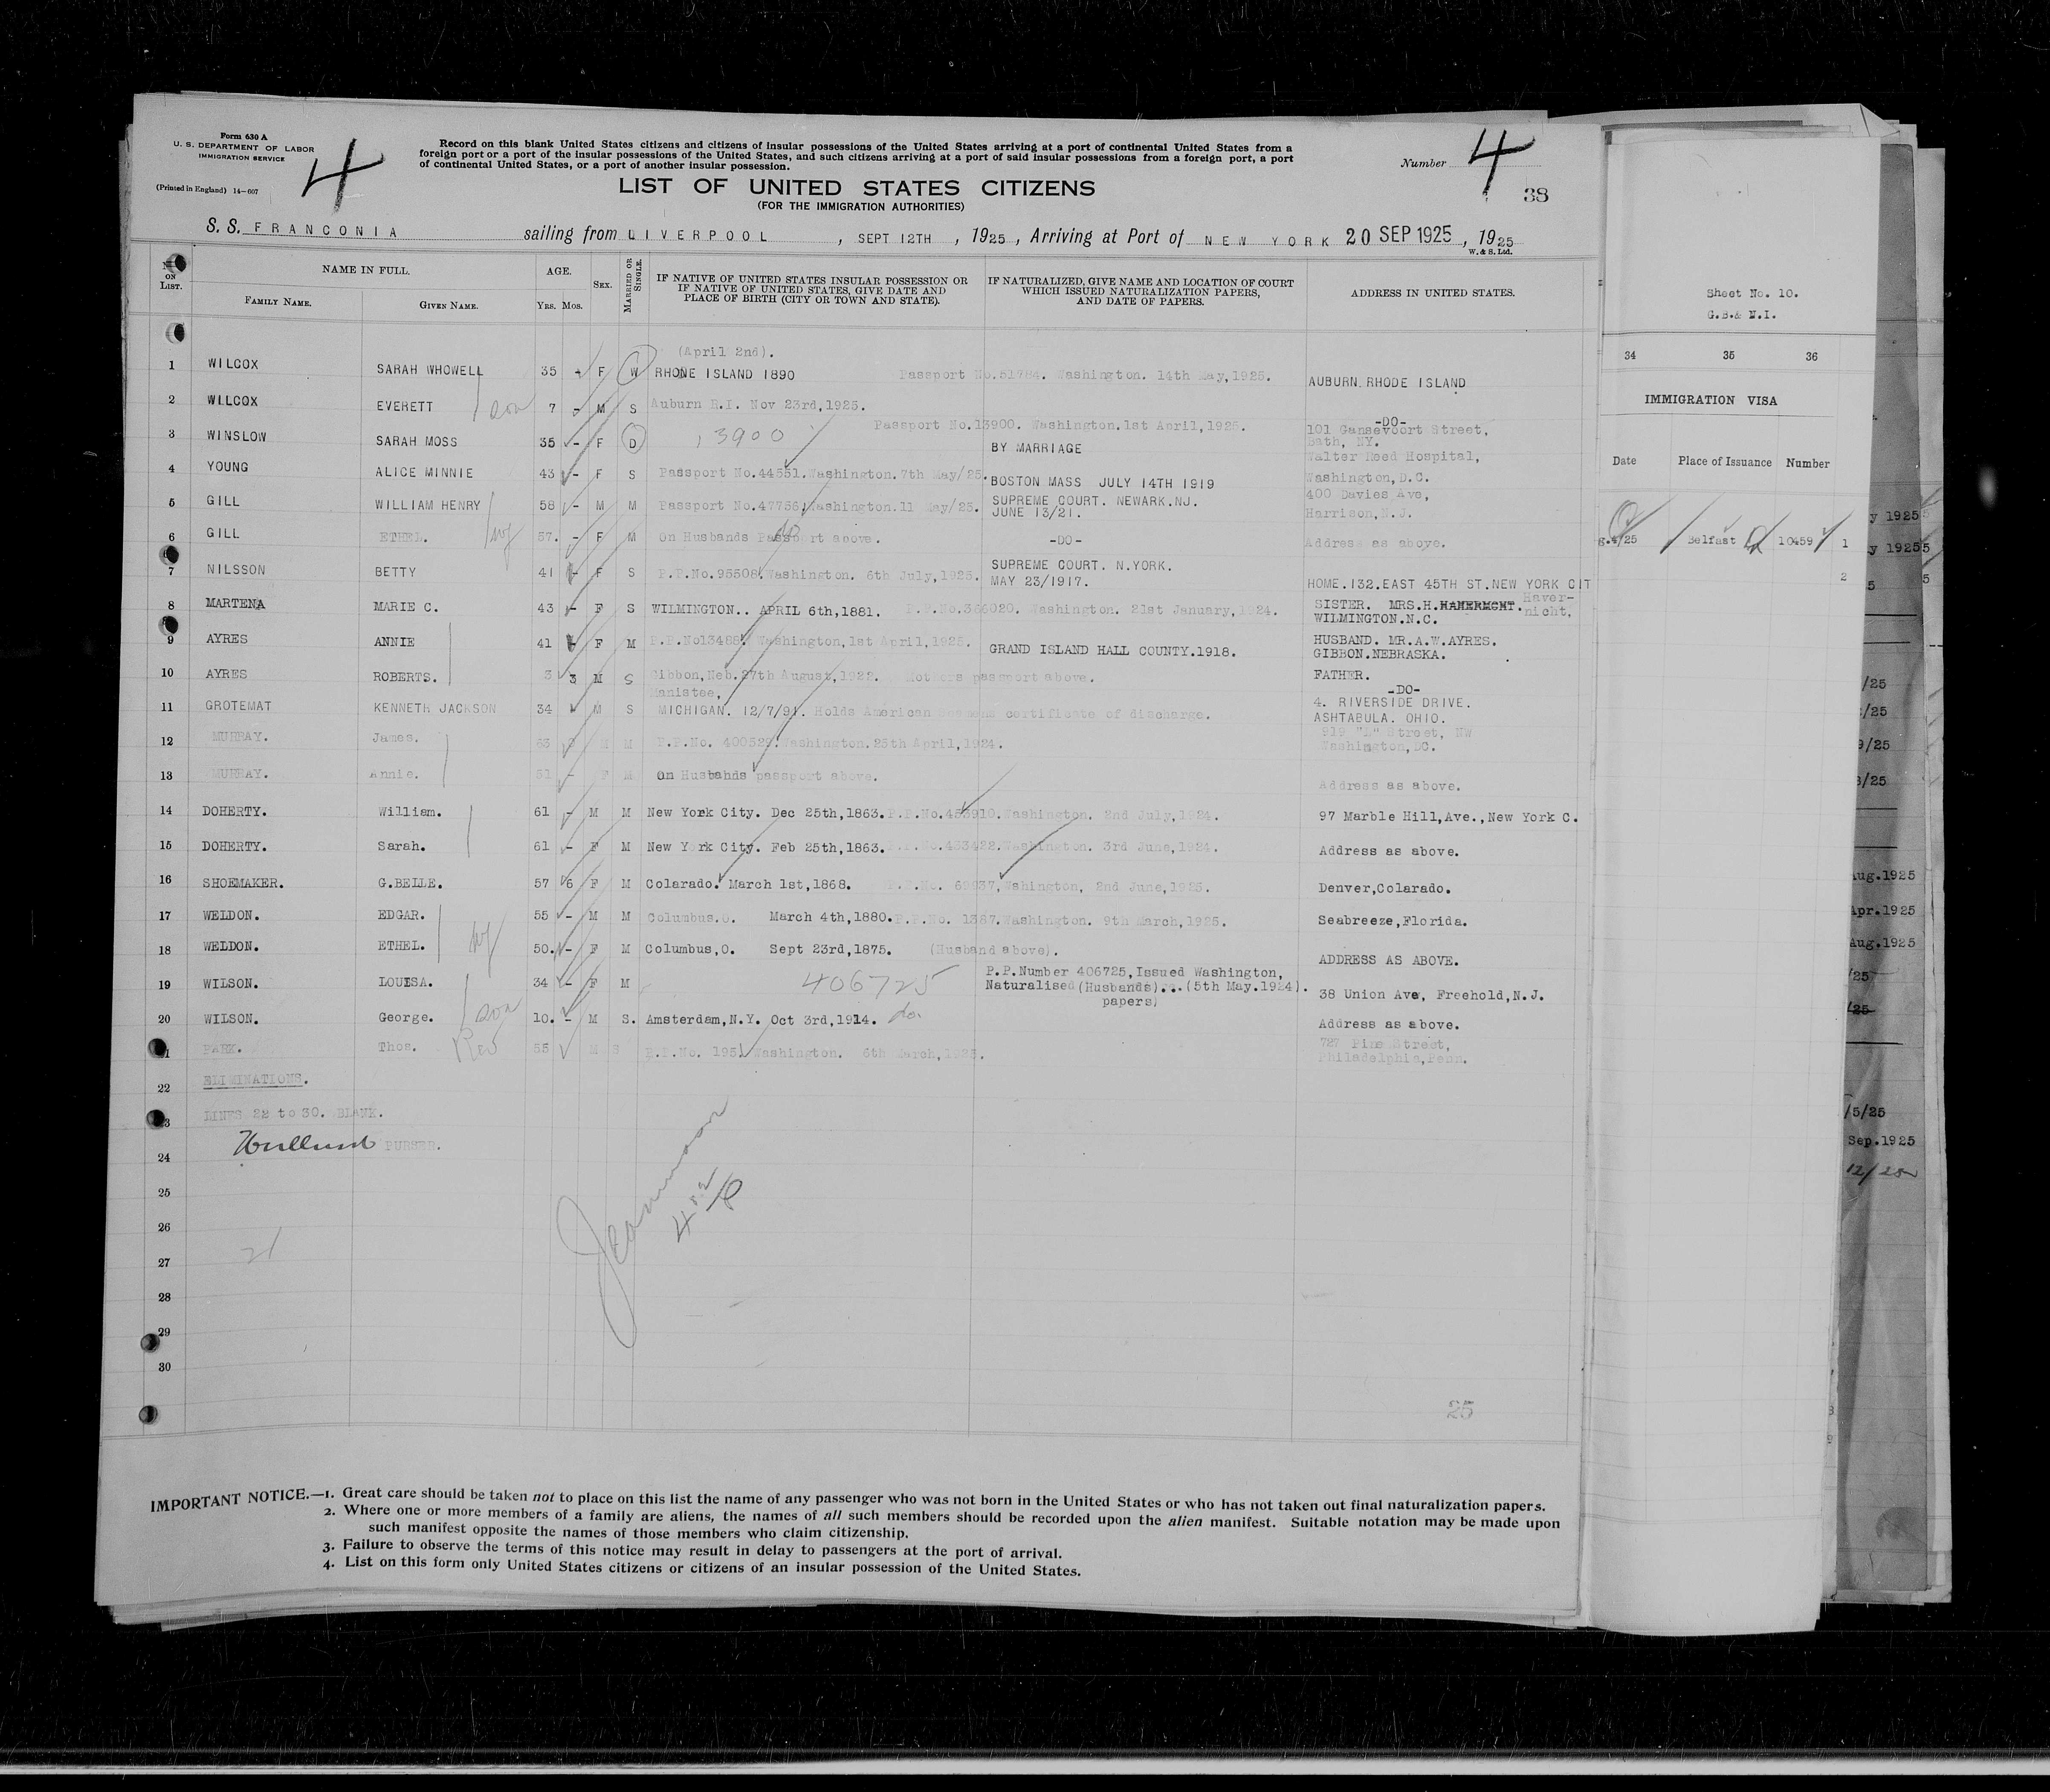 Form 630 A
U. S. DEPARTMENT OF LABOR
IMMIGRATION SERVICE
(Printed in England) 14—607
4
Record on this blank United States citizens and citizens of insular possessions of the United States arriving at a port of continental United States from a
foreign port or a port of the insular possessions of the United States, and such citizens arriving at a port of said insular possessions from a foreign port, a port
of continental United States, or a port of another insular possession.
Number 4
38
LIST OF UNITED STATES CITIZENS
(FOR THE IMMIGRATION AUTHORITIES)
S. S. FRANCONIA sailing from LIVERPOOL, SEPT 12TH, 1925, Arriving at Port of NEW YORK 20 SEP 1925, 1925
W. & S. Ltd.
ON LIST. NAME IN FULL. FAMILY NAME. GIVEN NAME. AGE. YRS. MOS. SEX. MARRIED OR SINGLE.
IF NATIVE OF UNITED STATES INSULAR POSSESSION OR
IF NATIVE OF UNITED STATES, GIVE DATE AND
PLACE OF BIRTH (CITY OR TOWN AND STATE).
IF NATURALIZED, GIVE NAME AND LOCATION OF COURT
WHICH ISSUED NATURALIZATION PAPERS,
AND DATE OF PAPERS.
ADDRESS IN UNITED STATES.
(April 2nd).
1 WILCOX SARAH WHOWELL 35 - F W RHONE ISLAND 1890 Passport No.51784. Washington. 14th May,1925. AUBURN.RHODE ISLAND
2 WILCOX EVERETT son 7 - M S Auburn R.I. Nov 23rd,1925. -DO-
3 WINSLOW SARAH MOSS 35 - F D 13900 Passport No.13900. Washington.1st April,1925. BY MARRIAGE 101 Gansevoort Street,
Bath, NY.
4 YOUNG ALICE MINNIE 43 - F S Passport No.44551.Washington.7th May/25. BOSTON MASS JULY 14TH 1919 Walter Reed Hospital,
Washington,D.C.
5 GILL WILLIAM HENRY 58 - M M Passport No.47756.Washington.11 May/25. SUPREME COURT. NEWARK.NJ.
JUNE 13/21. 400 Davies Ave,
Harrison,N.J.
6 GILL ETHEL. wf 57. - F M On Husbands Passport above. do -DO- Address as above.
7 NILSSON BETTY 41 - F S P.P.No.95508.Washington. 6th July,1925. SUPREME COURT. N.YORK.
MAY 23/1917. HOME.132.EAST 45TH ST.NEW YORK CIT
8 MARTENA MARIE C. 43 - F S WILMINGTON.. APRIL 6th,1881. P.P.No.366020. Washington. 21st January,1924. SISTER. MRS.H. Haver-
nicht.
WILMINGTON.N.C.
9 AYRES ANNIE 41 - F M P.P.No13488. Washington,1st April,1925. GRAND ISLAND HALL COUNTY.1918. HUSBAND. MR.A.W.AYRES.
GIBBON.NEBRASKA.
10 AYRES ROBERTS. 3 3 M S Gibbon,Neb.27th August,1922. Mothers passport above. FATHER.
-DO-
Manistee,
11 GROTEMAT KENNETH JACKSON 34 M S MICHIGAN. 12/7/91. Holds American Seamens certificate of discharge. 4. RIVERSIDE DRIVE.
ASHTABULA. OHIO.
12 MURRAY. James. 63 M M P.P.No. 400529.Washington.25th April,1924. 919 "L" Street, NW
Washington,DC.
13 MURRAY. Annie. 51 - F M On Husbands passport above. Address as above.
14 DOHERTY. William. 61 - M M New York City. Dec 25th,1863. P.P.No.453910.Washington. 2nd July,1924. 97 Marble Hill,Ave.,New York C.
15 DOHERTY. Sarah. 61 - F M New York City. Feb 25th,1863. P.P.No.433422.Washington. 3rd June,1924. Address as above.
16 SHOEMAKER. G.BELLE. 57 6 F M Colarado. March 1st,1868. P.P.No. 69637,Washington, 2nd June,1925. Denver,Colarado.
17 WELDON. EDGAR. 55 - M M Columbus.O. March 4th,1880. P.P.No. 1387.Washington. 9th March,1925. Seabreeze,Florida.
18 WELDON. ETHEL. wf 50. - F M Columbus,O. Sept 23rd,1875. (Husband above). ADDRESS AS ABOVE.
19 WILSON. LOUISA. 34 - F M 406725 P.P.Number 406725,Issued Washington,
Naturalised (Husbands)...(5th May.1924).
papers) 38 Union Ave, Freehold,N.J.
20 WILSON. George. son 10. - M S. Amsterdam,N.Y. Oct 3rd,1914. do. Address as above.
PARK. Thos. Rev 55 M S P.P.No. 195. Washington. 6th March,1925. 727 Pine Street,
Philadelphia,Penn.
22 ELIMINATIONS.
LINES 22 to 30. BLANK.
PURSER.
24
25
26
21
27
28
29
30
25
IMPORTANT NOTICE.—1. Great care should be taken not to place on this list the name of any passenger who was not born in the United States or who has not taken out final naturalization papers.
2. Where one or more members of a family are aliens, the names of all such members should be recorded upon the alien manifest. Suitable notation may be made upon
such manifest opposite the names of those members who claim citizenship.
3. Failure to observe the terms of this notice may result in delay to passengers at the port of arrival.
4. List on this form only United States citizens or citizens of an insular possession of the United States.
Sheet No. 10.
G.B.& N.I.
34 35 36
IMMIGRATION VISA
Date Place of Issuance Number
g.4/25 Belfast 10459 1
2
y 1925
y 1925
5
/25
/25
9/25
3/25
Aug.1925
Apr.1925
Aug.1925
/25
/25
/5/25
Sep.1925
12/25